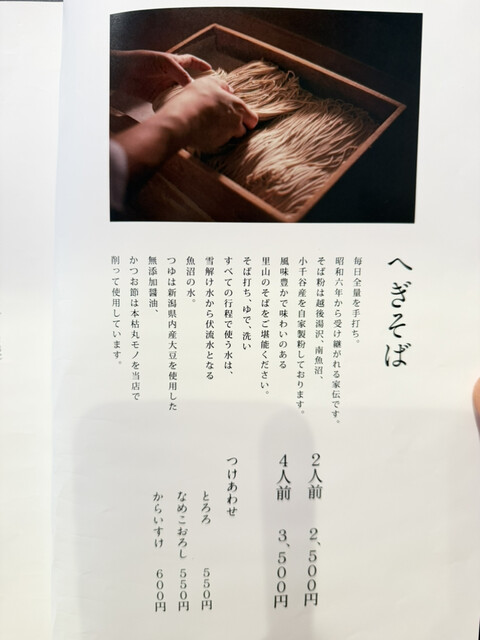 へぎそば
毎日全量を手打ち。
昭和六年から受け継がれる家伝です。
そば粉は越後湯沢、南魚沼、
小千谷産を自家製粉しております。
風味豊かで味わいのある
里山のそばをご堪能ください。
そば打ち、ゆで、洗い
すべての行程で使う水は、
雪解け水から伏流水となる
魚沼の水。
つゆは新潟県内産大豆を使用した
無添加醤油、
かつお節は本枯丸モノを当店で
削って使用しています。
2人前 2、500円
4人前 3、500円
つけあわせ
とろろ 550円
なめこおろし 550円
からいすけ 600円